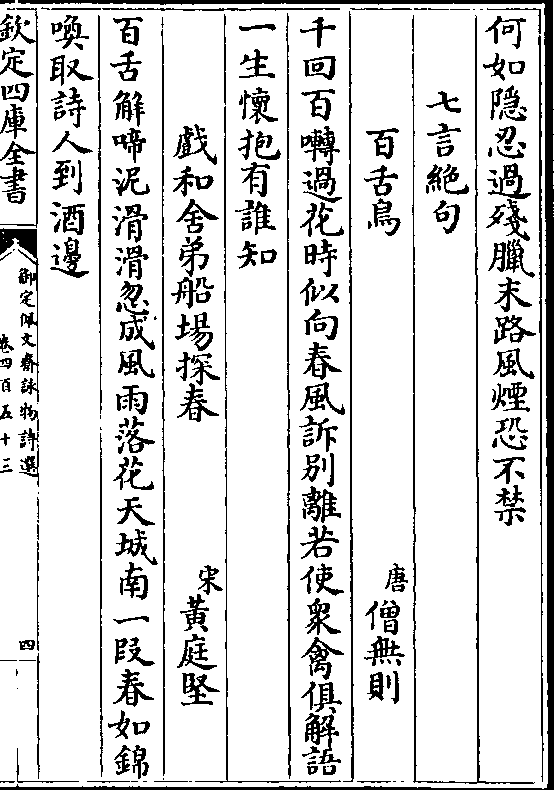 何如隐忍過殘臘末路風煙恐不禁
七言絶句
百舌鳥 唐 僧無則
千回百囀過花時似向春風訴别離若使衆禽俱解語
一生懷抱有誰知
戲和舍弟船場探春 宋 黃庭堅
百舌解啼泥滑滑忽成風雨落花天城南一段春如錦
喚取詩人到酒邊
欽定四庫全書
御定佩文齋詠物詩選
卷四百五十三
四